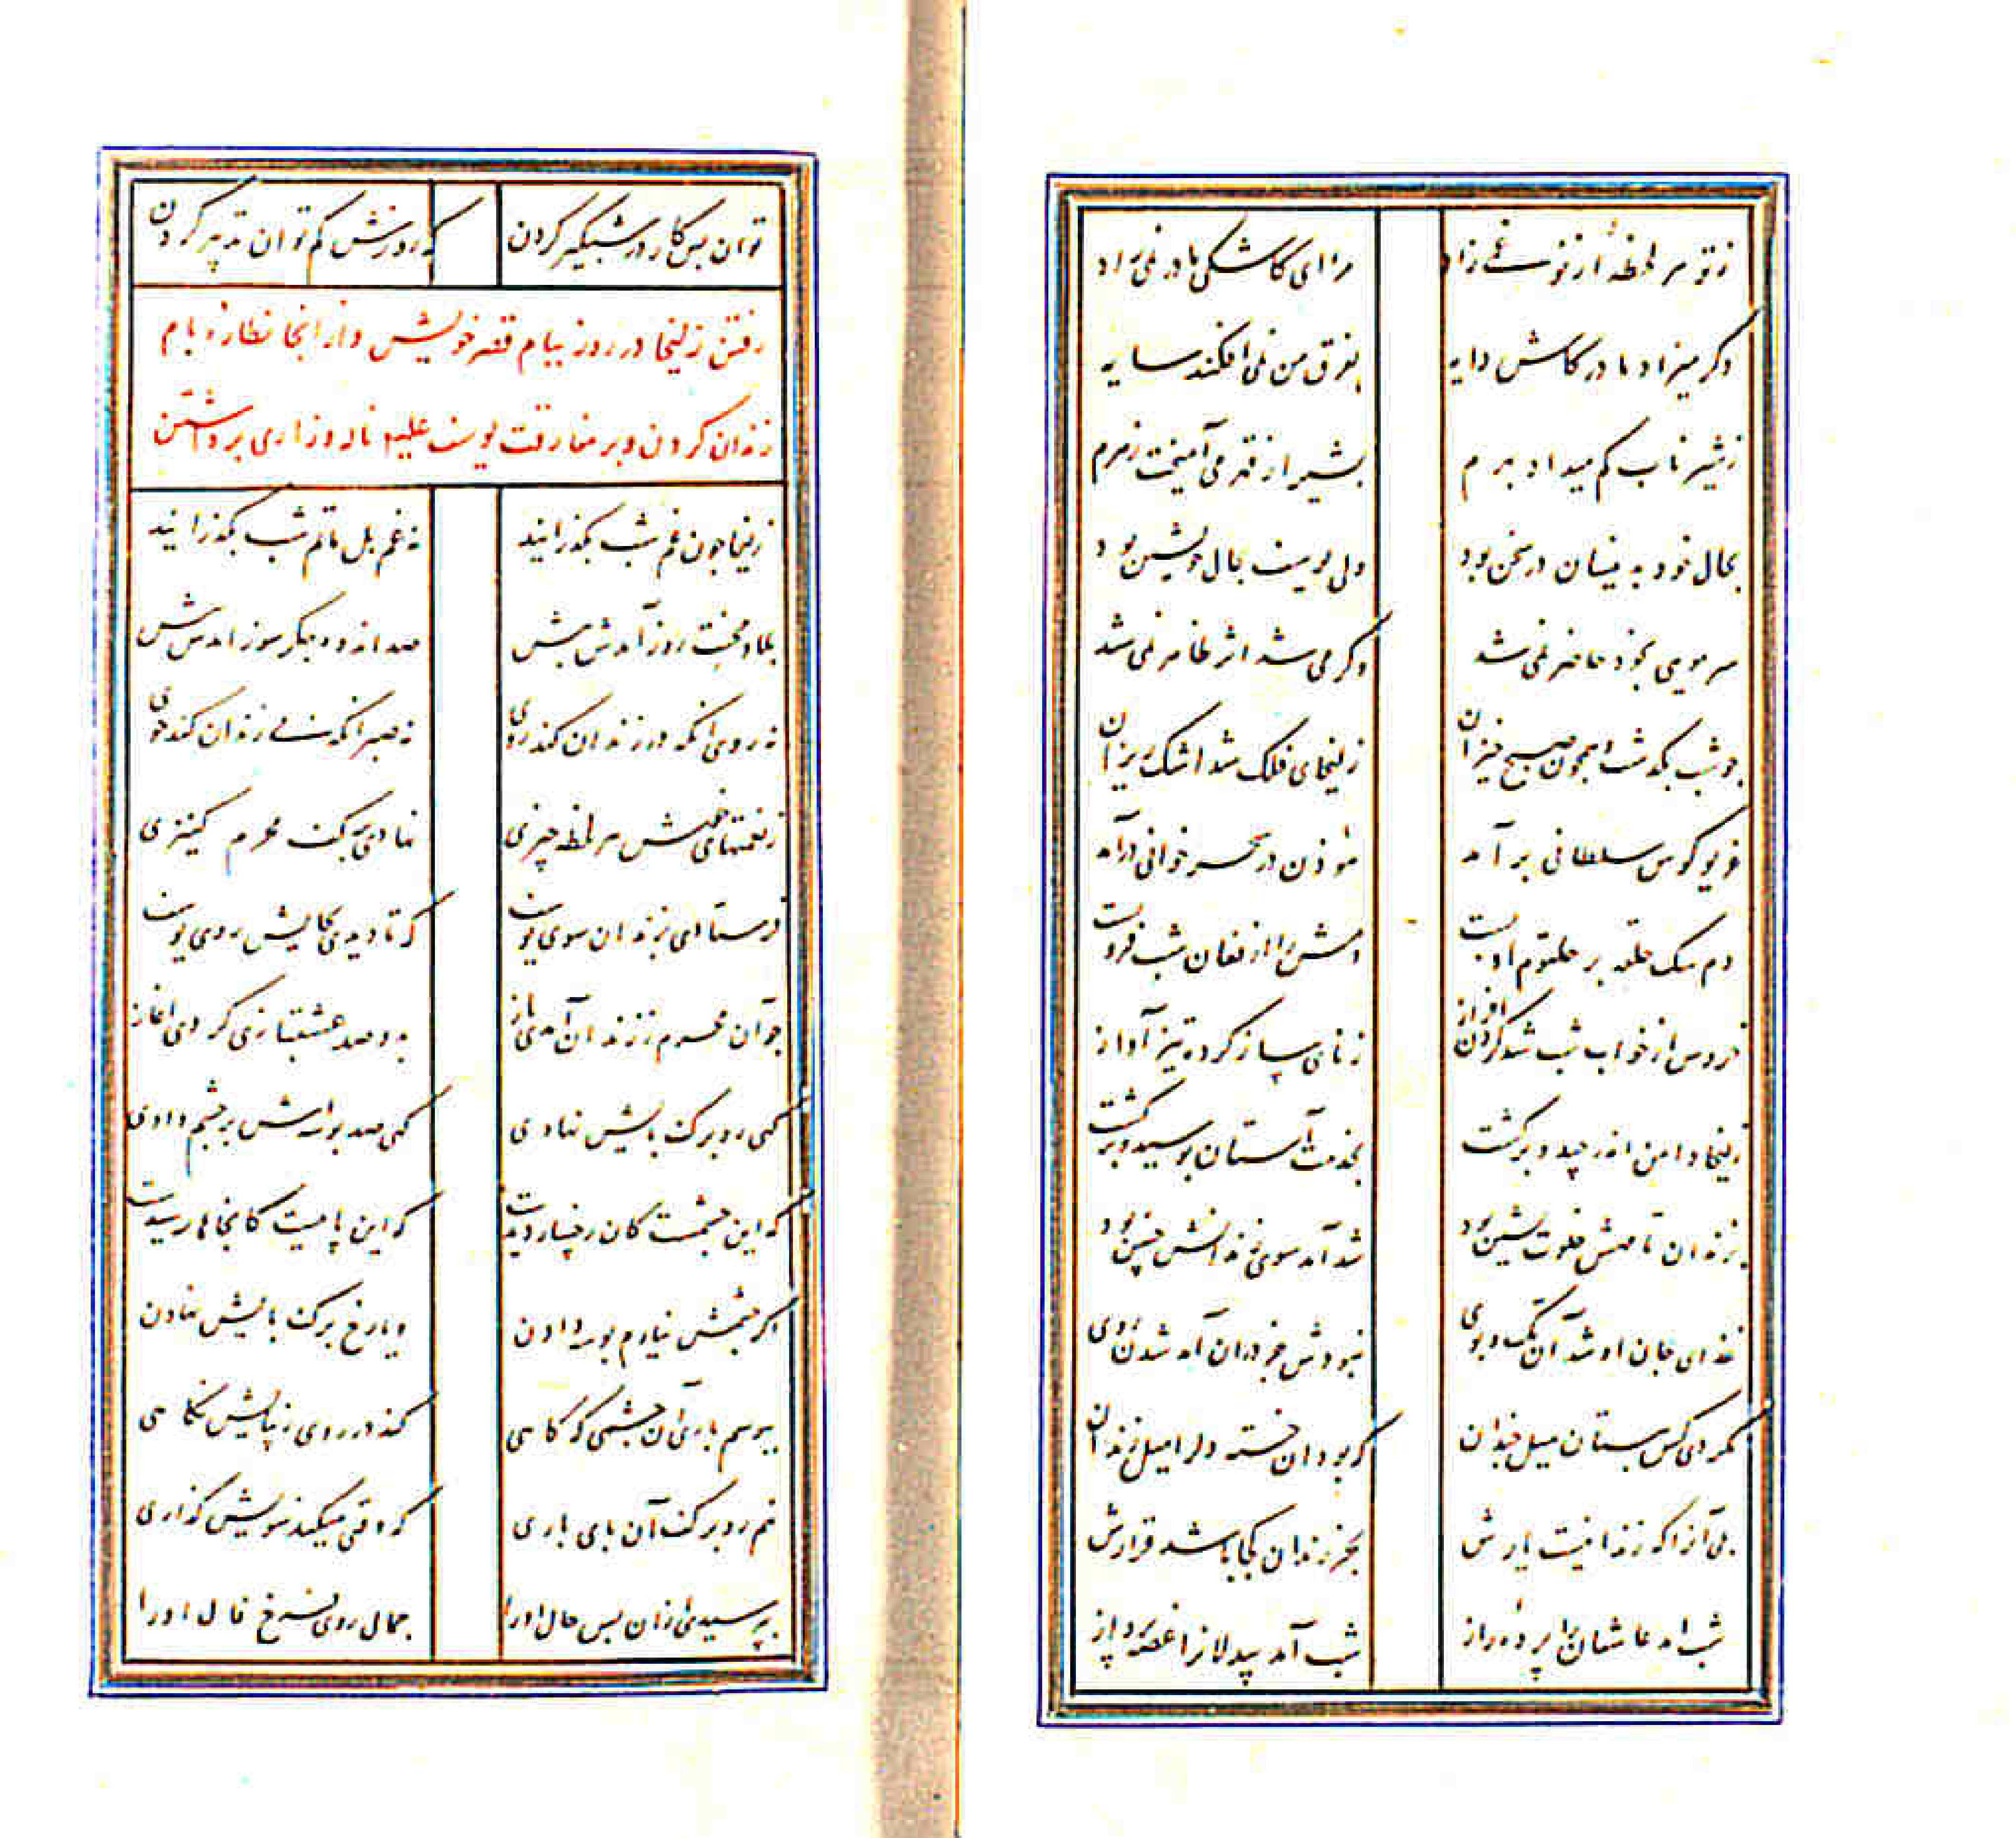 ز تو هر لحظه‌ام از نو غمی زاد مرا ای کاشکی مادر نمی‌زاد
وگر میزاد مادر کاش دایه بفرق من نمی‌افکند سایه
ز شیر ناب کم میداد بهرم بشیر از قهر می‌آمیخت زهرم
بحال خود بدینسان در سخن بود ولی یوسف بحال خویشتن بود
سر مویی بخود حاضر نمی‌شد وگر می‌شد اثر ظاهر نمی‌شد
چو شب بگذشت همچون صبح خیزان زلیخای فلک شد اشک ریزان
غریو کوس سلطانی بر آمد مؤذن در سحر خوانی درآمد
دم سگ حلقه بر حلقوم او بست دمش را از فغان شب فروبست
خروس از خواب شب شد گردن افراز ز نای ساز کرده تیز آواز
زلیخا دامن اندر چید و برگشت بخدمت آستان بوسید و برگشت
بزندان تا مهش خلوت نشین بود شد آمد سوی زندانش چنین بود
غذای جان او شد آن تک و پوی نبودش جز در آن آمد شدن روی
نکردی کس ببستان میل چندان که بود آن خسته دل را میل زندان
بلی آنرا که زندانیست یارش بجز زندان کجا باشد قرارش
شب آمد عاشقان را پرده راز شب آمد بیدلانرا غصه پرداز
توان بس کار در شبگیر کردن که روزش کم توان تدبیر کردن
رفتن زلیخا در روز ببام قصر خویش و از آنجا نظاره بام
زندان کردن و بر مفارقت یوسف علیه ناله و زاری برداشتن
زلیخا چون غم شب بگذرانید نه غم بل ماتم شب بگذرانید
بلا و محنت روز آمدش پیش صد اندوه جگر سوز آمدش پیش
نه روی آنکه در زندان کند روی نه صبر آنکه بی زندان کند خوی
ز نعمتهای خوش هر لحظه چیزی نهادی بر کف محرم کنیزی
فرستادی بزندان سوی یوسف که تا دیدی بجایش روی یوسف
چو آن محرم ز زندان آمدی باز بدو صد عشقبازی کردی آغاز
گهی رو بر کف پایش نهادی گهی صد بوسه‌اش بر چشم دادی
که این چشمست کان رخسار دیدست که این پاییست کانجاها رسیدست
اگر چشمش نیارم بوسه دادن و یا رخ بر کف پایش نهادن
ببوسم باری آن چشمی که گاهی کند در روی زیبایش نگاهی
نهم رو بر کف آن پای باری که وقتی میکند سویش گذاری
بپرسیدی از آن پس حال او را جمال روی فرخ فال او را